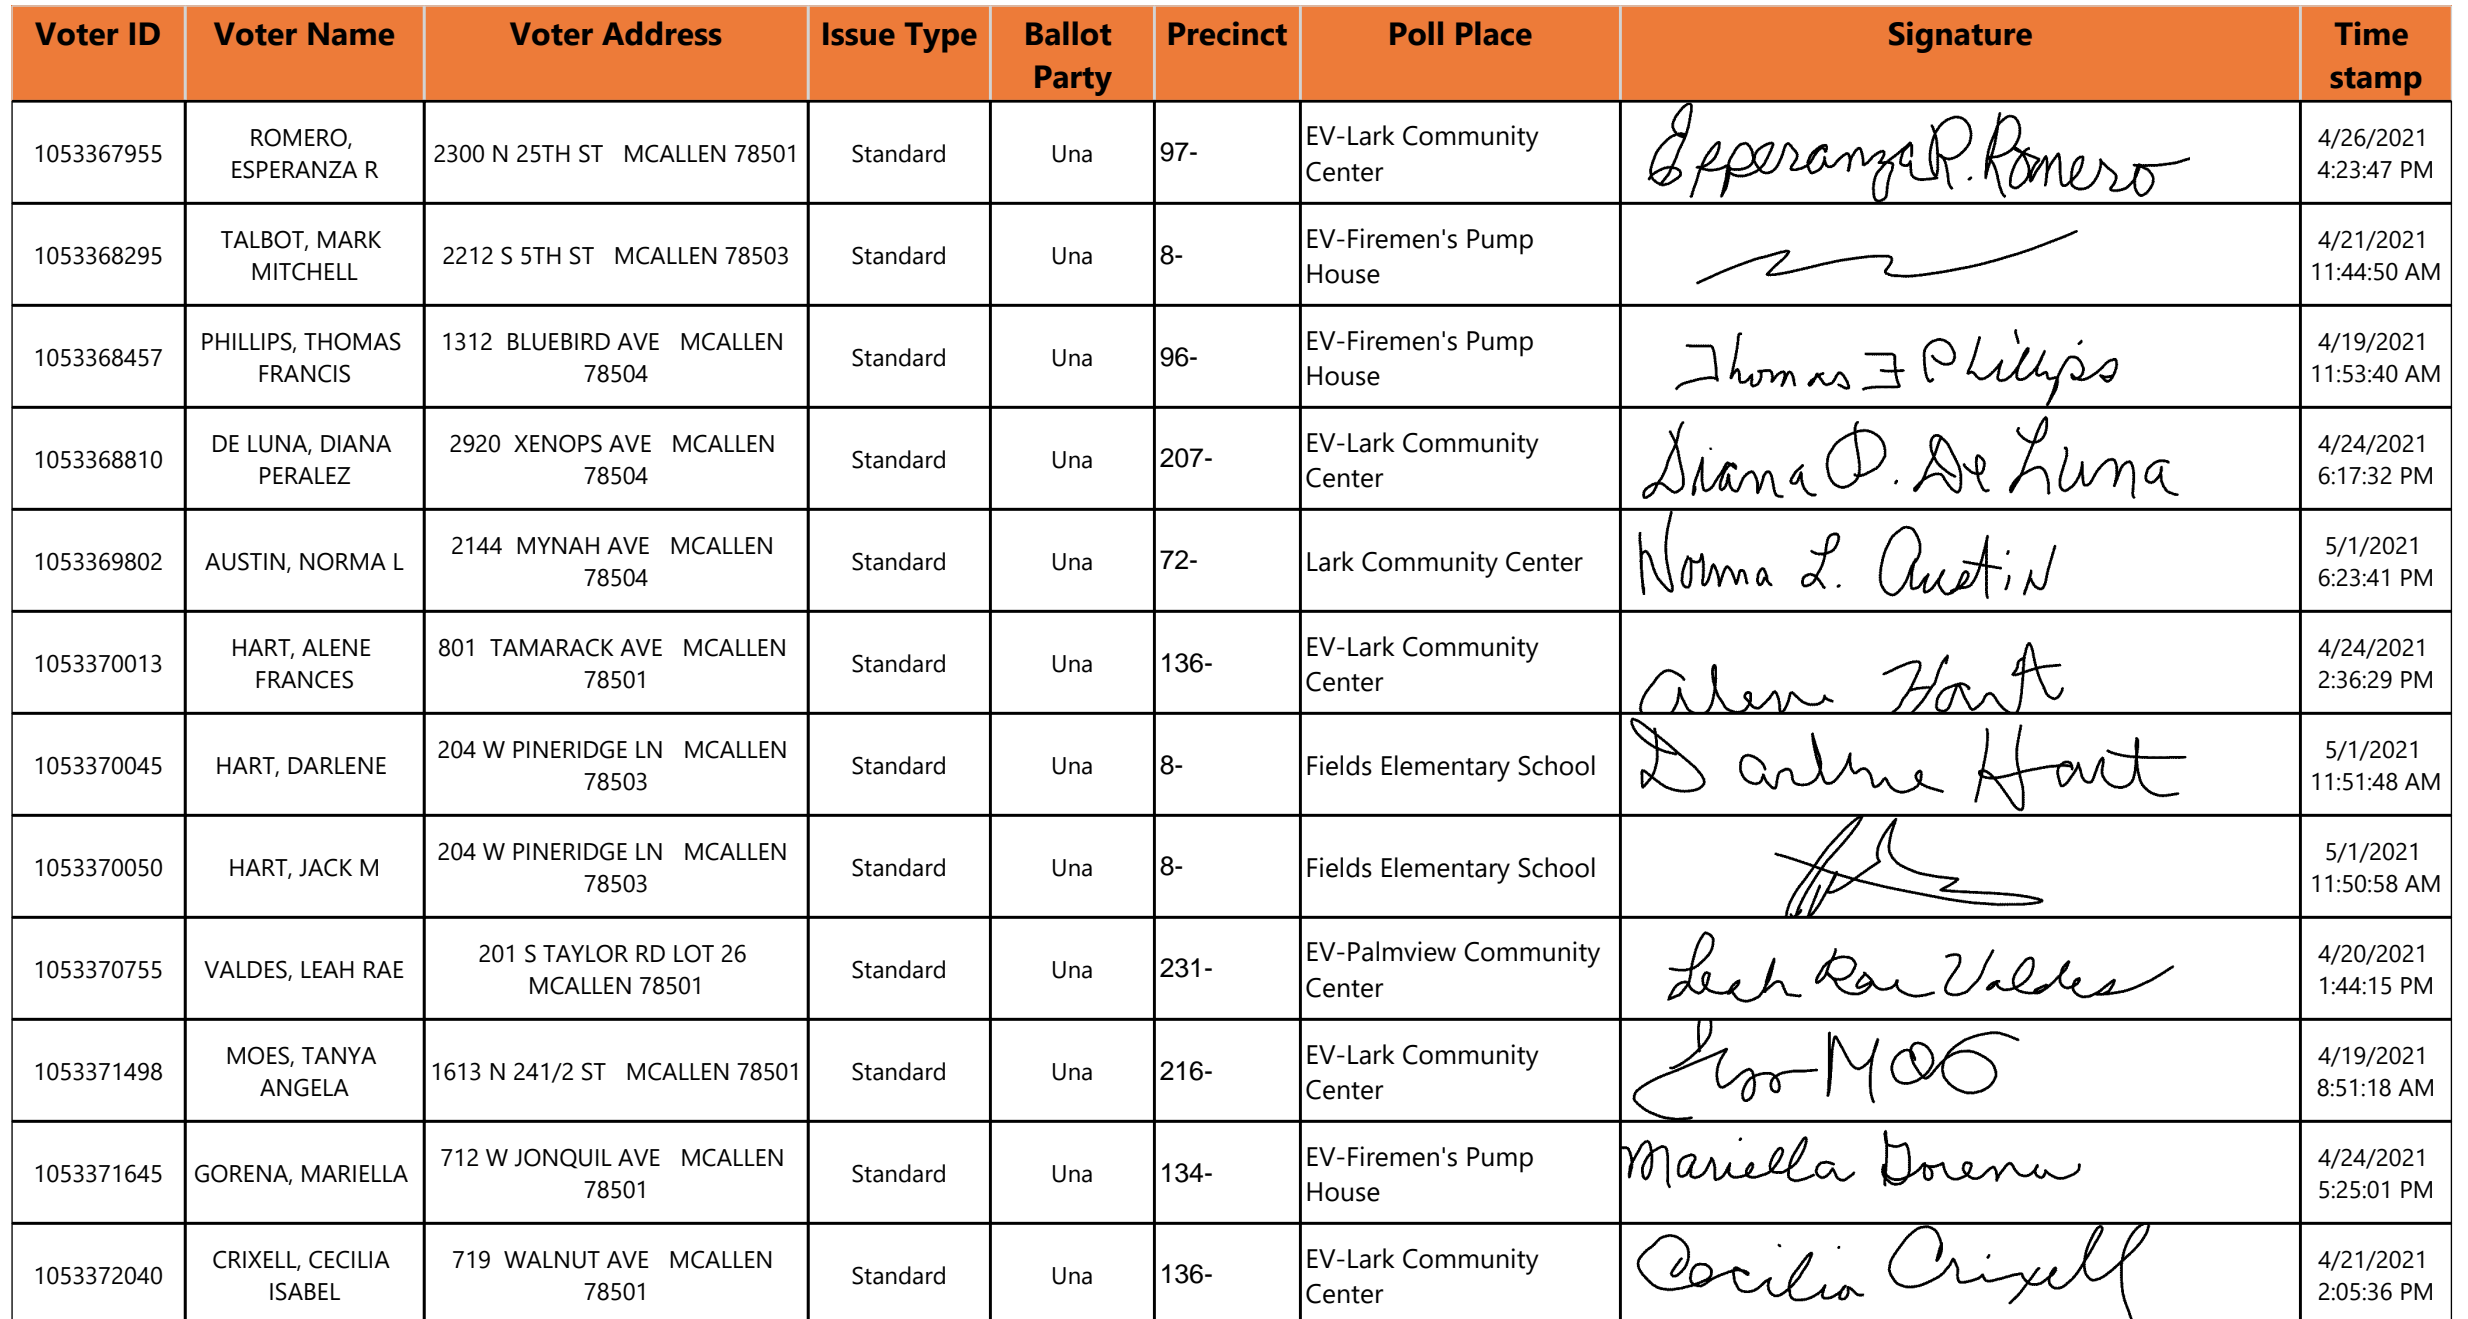 Voter ID Voter Name Voter Address Issue Type Ballot Party Precinct Poll Place Signature Time stamp
1053367955 ROMERO, ESPERANZA R 2300 N 25TH ST MCALLEN 78501 Standard Una 97- EV-Lark Community Center Esperanza R. Romero 4/26/2021 4:23:47 PM
1053368295 TALBOT, MARK MITCHELL 2212 S 5TH ST MCALLEN 78503 Standard Una 8- EV-Firemen's Pump House 4/21/2021 11:44:50 AM
1053368457 PHILLIPS, THOMAS FRANCIS 1312 BLUEBIRD AVE MCALLEN 78504 Standard Una 96- EV-Firemen's Pump House Thomas F Phillips 4/19/2021 11:53:40 AM
1053368810 DE LUNA, DIANA PERALEZ 2920 XENOPS AVE MCALLEN 78504 Standard Una 207- EV-Lark Community Center Diana P. De Luna 4/24/2021 6:17:32 PM
1053369802 AUSTIN, NORMA L 2144 MYNAH AVE MCALLEN 78504 Standard Una 72- Lark Community Center Norma L. Austin 5/1/2021 6:23:41 PM
1053370013 HART, ALENE FRANCES 801 TAMARACK AVE MCALLEN 78501 Standard Una 136- EV-Lark Community Center Alene Hart 4/24/2021 2:36:29 PM
1053370045 HART, DARLENE 204 W PINERIDGE LN MCALLEN 78503 Standard Una 8- Fields Elementary School Darlene Hart 5/1/2021 11:51:48 AM
1053370050 HART, JACK M 204 W PINERIDGE LN MCALLEN 78503 Standard Una 8- Fields Elementary School 5/1/2021 11:50:58 AM
1053370755 VALDES, LEAH RAE 201 S TAYLOR RD LOT 26 MCALLEN 78501 Standard Una 231- EV-Palmview Community Center Leah Rae Valdes 4/20/2021 1:44:15 PM
1053371498 MOES, TANYA ANGELA 1613 N 241/2 ST MCALLEN 78501 Standard Una 216- EV-Lark Community Center 4/19/2021 8:51:18 AM
1053371645 GORENA, MARIELLA 712 W JONQUIL AVE MCALLEN 78501 Standard Una 134- EV-Firemen's Pump House Mariella Gorena 4/24/2021 5:25:01 PM
1053372040 CRIXELL, CECILIA ISABEL 719 WALNUT AVE MCALLEN 78501 Standard Una 136- EV-Lark Community Center Cecilia Crixell 4/21/2021 2:05:36 PM